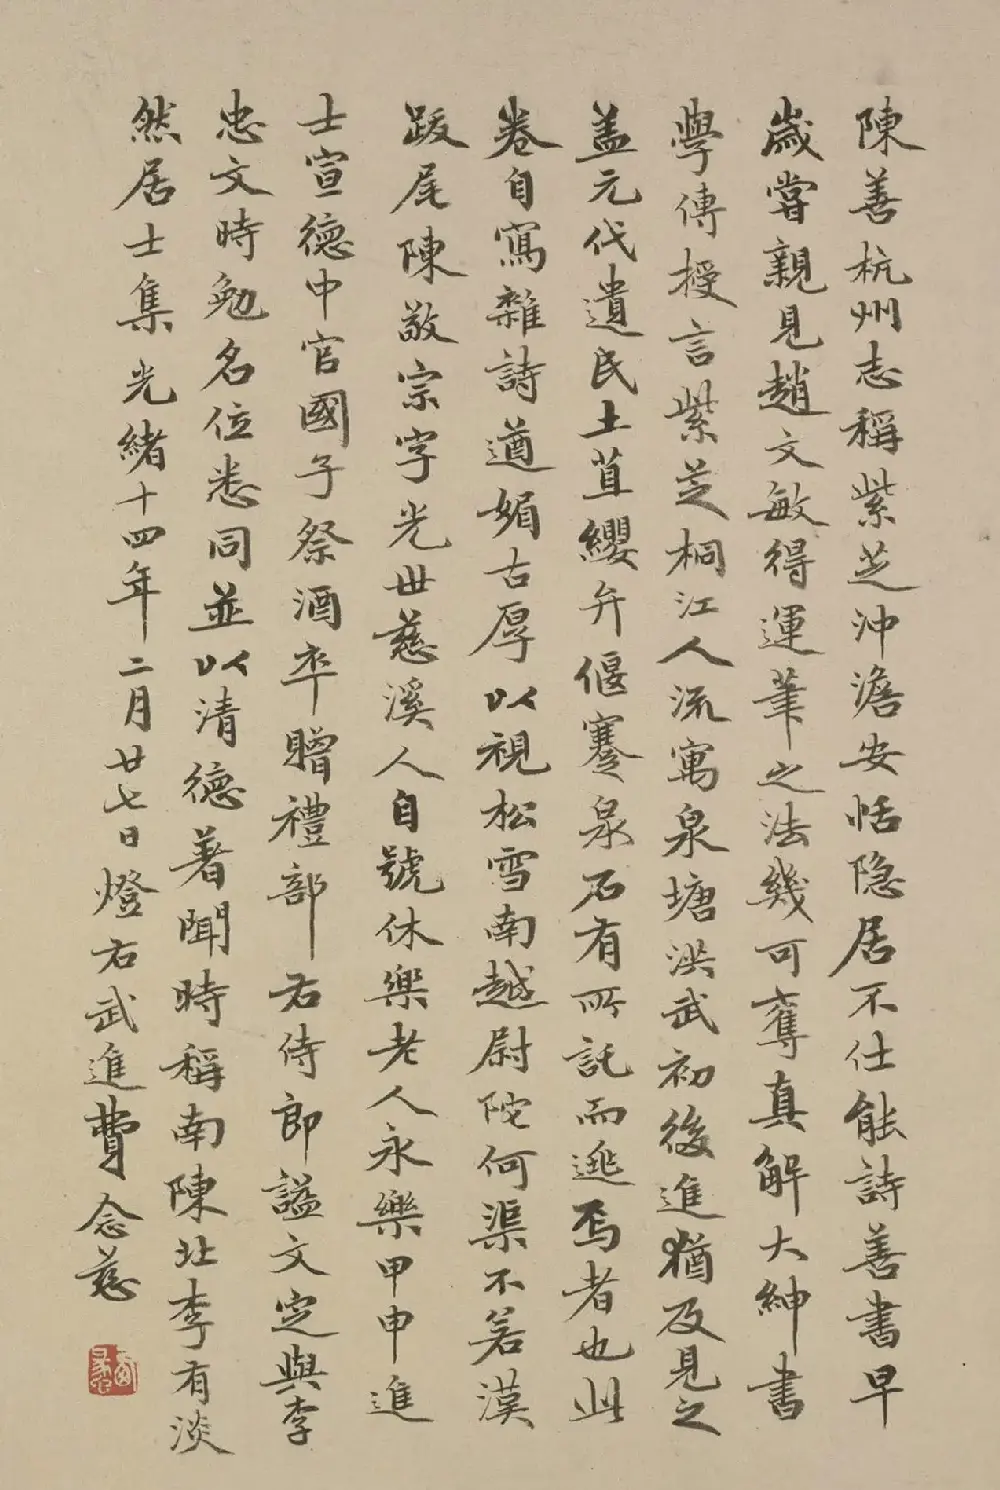 陳善杭州志稱紫芝沖澹安恬隐居不仕能詩善書早
歲嘗親見趙文敏得運筆之法幾可奪真解大紳書
學傳授言紫芝桐江人流寓泉塘洪武初後進猶及見之
盖元代遺民土苴纓弁偃蹇泉石有所託而逃焉者也此
卷自寫雜詩遒媚古厚以視松雪南越尉陀何渠不若漢
跋尾陳敬宗字光世慈溪人自號休樂老人永樂甲申進
士宣德中官國子祭酒卒贈禮部右侍郎謚文定與李
忠文時勉名位悉同並以清德著聞時稱南陳北李有淡
然居士集光緒十四年二月廿七日燈右武進費念慈